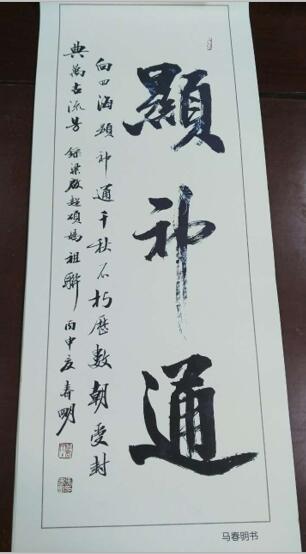 顯神通
向四海顯神通千秋不朽歷數朝受封
典萬古流芳 錄梁啟超頌媽祖聯 丙申夏 春明
马春明书